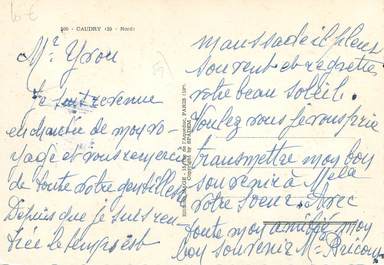 10 €
500 - CAUDRY (59 - Nord)
Mr Yvon
Je suis revenue
enchantée de mon vo-
yage et vous remercie
de toute votre gentillesse
Depuis que je suis ren-
trée le temps est
maussade il pleut
souvent et regrette
votre beau soleil.
Voulez vous je vous prie
transmettre mon bon
souvenir à
votre soeur. Avec
toute mon amitié mon
bon souvenir Me Bricout
PARIS